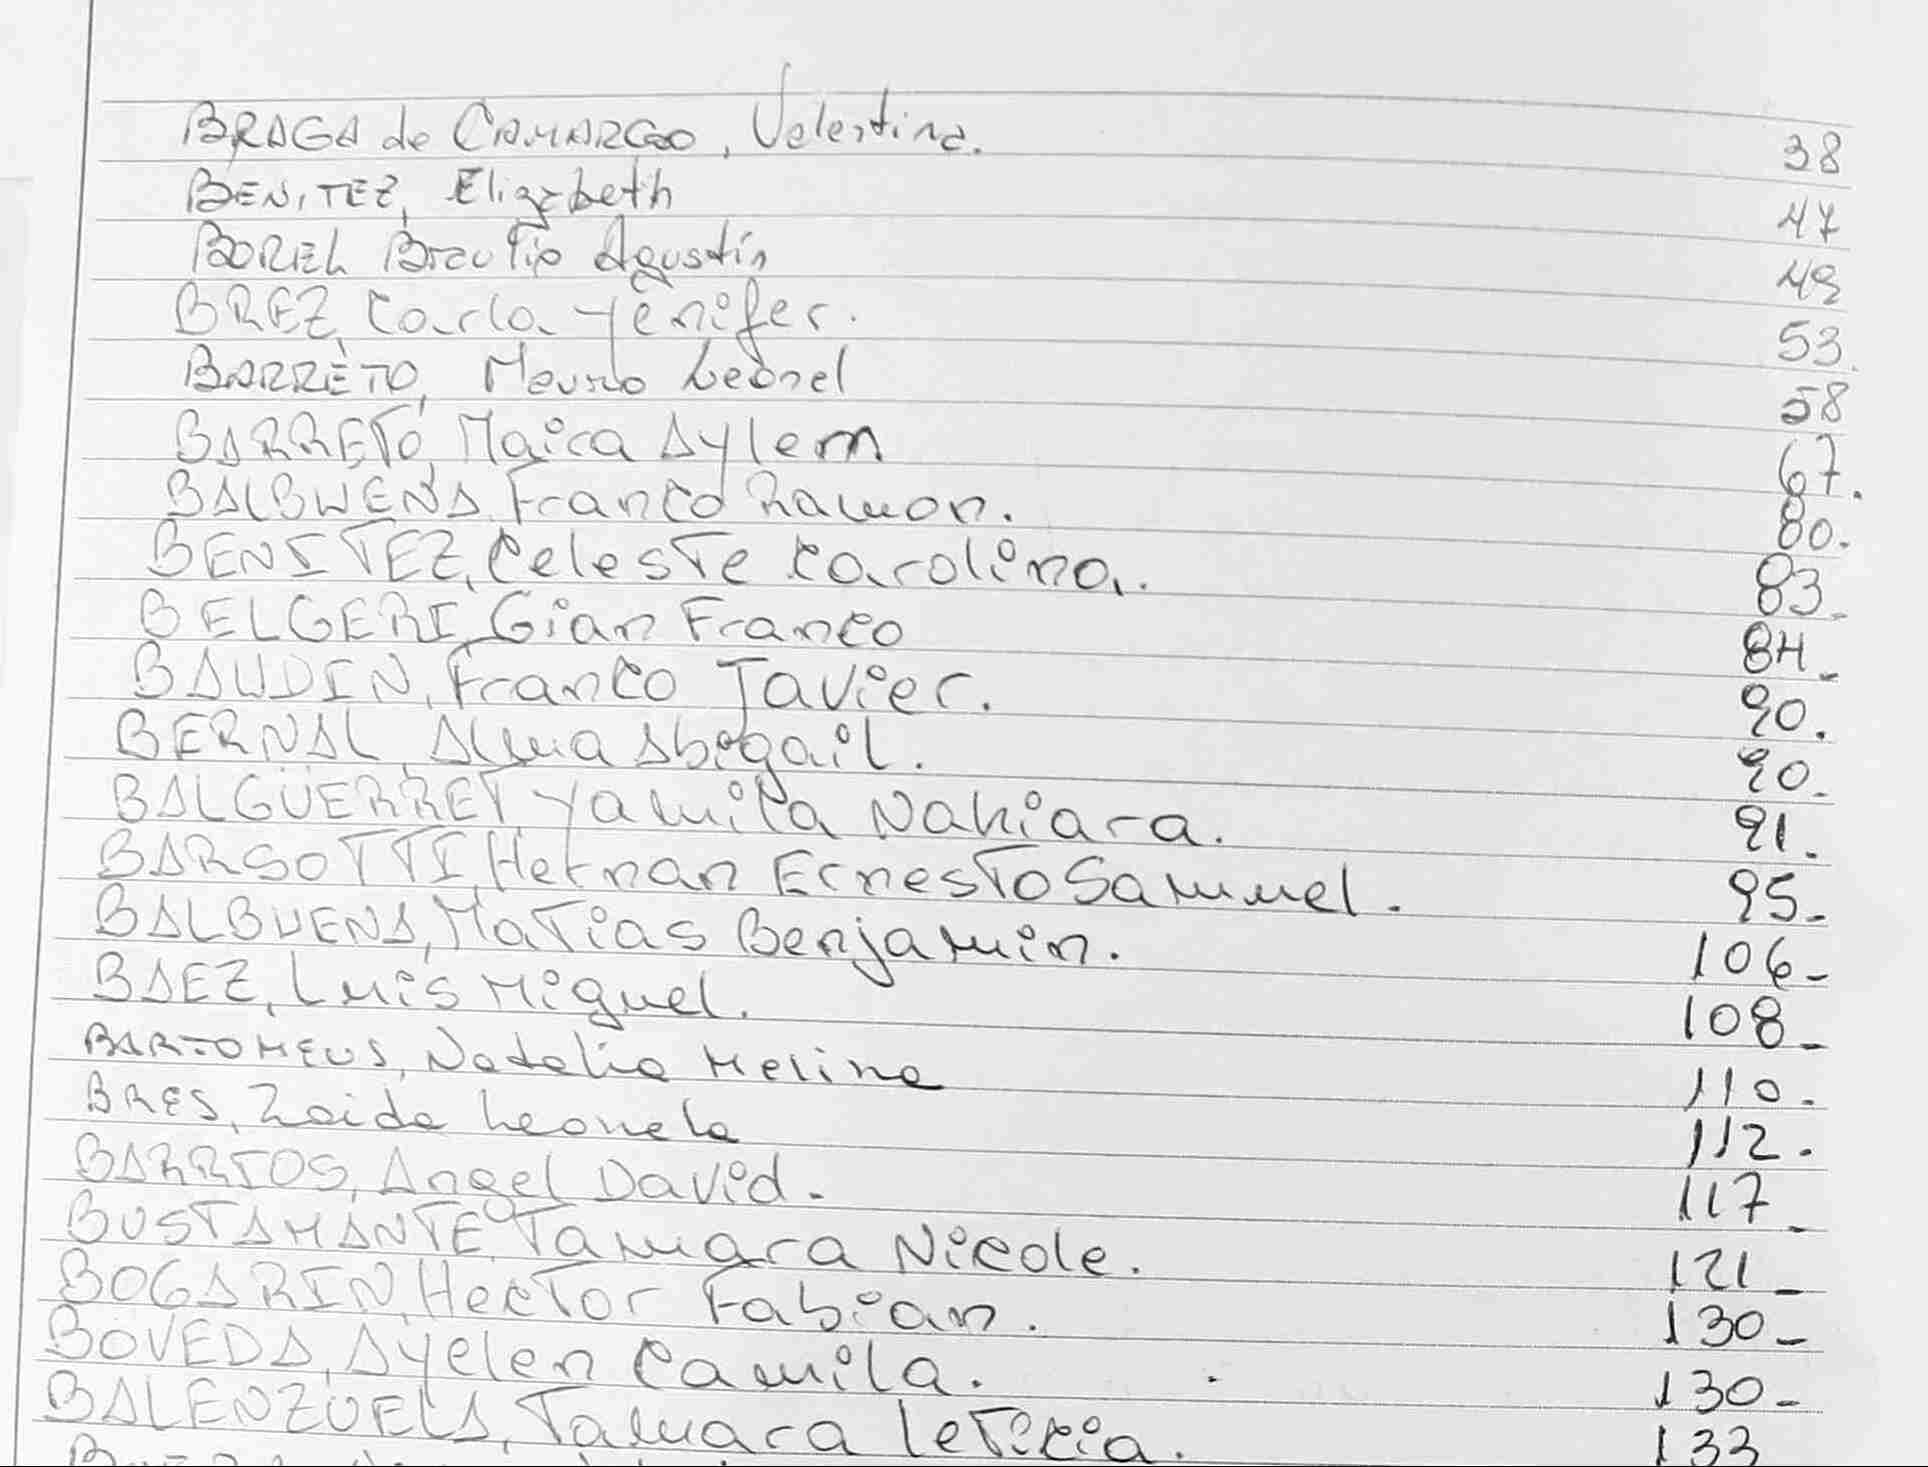 BRAGA de CAMARGO, Valentina. 38
BENITEZ, Elizabeth 47
BOREL Braulio Agustín 49
BREZ, Carla Yenifer. 53.
BARRETO, Mauro Leonel 58
BARRETO, Maica Aylem 67.
BALBUENA, Franco Ramon. 80.
BENITEZ, Celeste Carolina. 83.
BELGERI, Gian Franco 84-
BAUDIN, Franco Javier. 90.
BERNAL, Alma Abigail. 90.
BALGÜERRET Yamila Nahiara. 91.
BARSOTTI, Hernan Ernesto Samuel. 95-
BALBUENA, Matias Benjamin. 106-
BAEZ, Luis Miguel. 108-
BARTOMEUS, Natalia Melina 110.
BRES, Zaida Leonela 112.
BARRIOS, Angel David. 117-
BUSTAMANTE, Tamara Nicole. 121-
BOGARIN, Hector Fabian. 130-
BOVEDA, Ayelen Camila. 130-
BALENZUELA, Tamara Leticia. 133